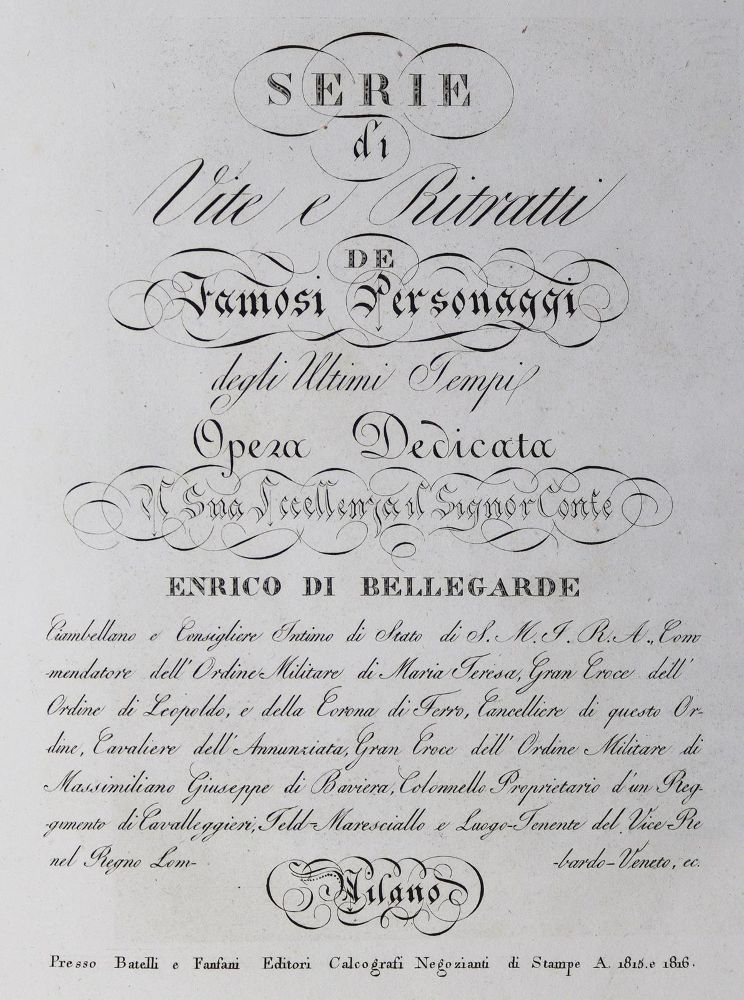 SERIE
di
Vite e Ritratti
DE
Famosi Personaggi
degli Ultimi Tempi
Opera Dedicata
A Sua Eccellenza il Signor Conte
ENRICO DI BELLEGARDE
Ciambellano e Consigliere Intimo di Stato di S. M. I. R. A., Com
mendatore dell' Ordine Militare di Maria Teresa, Gran Croce dell'
Ordine di Leopoldo, e della Corona di Ferro, Cancelliere di questo Or-
dine, Cavaliere dell' Annunziata, Gran Croce dell' Ordine Militare di
Massimiliano Giuseppe di Baviera, Colonnello Proprietario d'un Reg-
gimento di Cavalleggieri, Feld-Maresciallo e Luogo-Tenente del Vice-Re
nel Regno Lom- -bardo-Veneto, ec.
Milano
Presso Batelli e Fanfani Editori Calcografi Negozianti di Stampe A. 1815. e 1816.